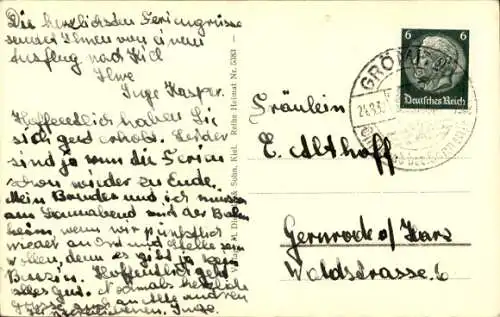 Die herzlichsten Feriengrüsse
sendet Ihnen von einem
Ausflug nach Kiel
Ihre
Inge Kasper.
Hoffentlich haben Sie
sich gut erholt. Leider
sind ja nun die Ferien
schon wieder zu Ende.
Mein Bruder und ich müssen
am Sonnabend mit der Bahn
heim, wenn wir pünktlich
wieder an Ort und Stelle sein
wollen, denn es gibt ja kein
Benzin. Hoffentlich geht
alles gut. Nochmals herzliche
Grüsse auch an
Inge.
Kiel. Reihe Heimat Nr. 5383
6 6
Deutsches Reich
GRÖM
Fräulein
E. Althoff
Gernrode o/Harz
Waldstrasse 6